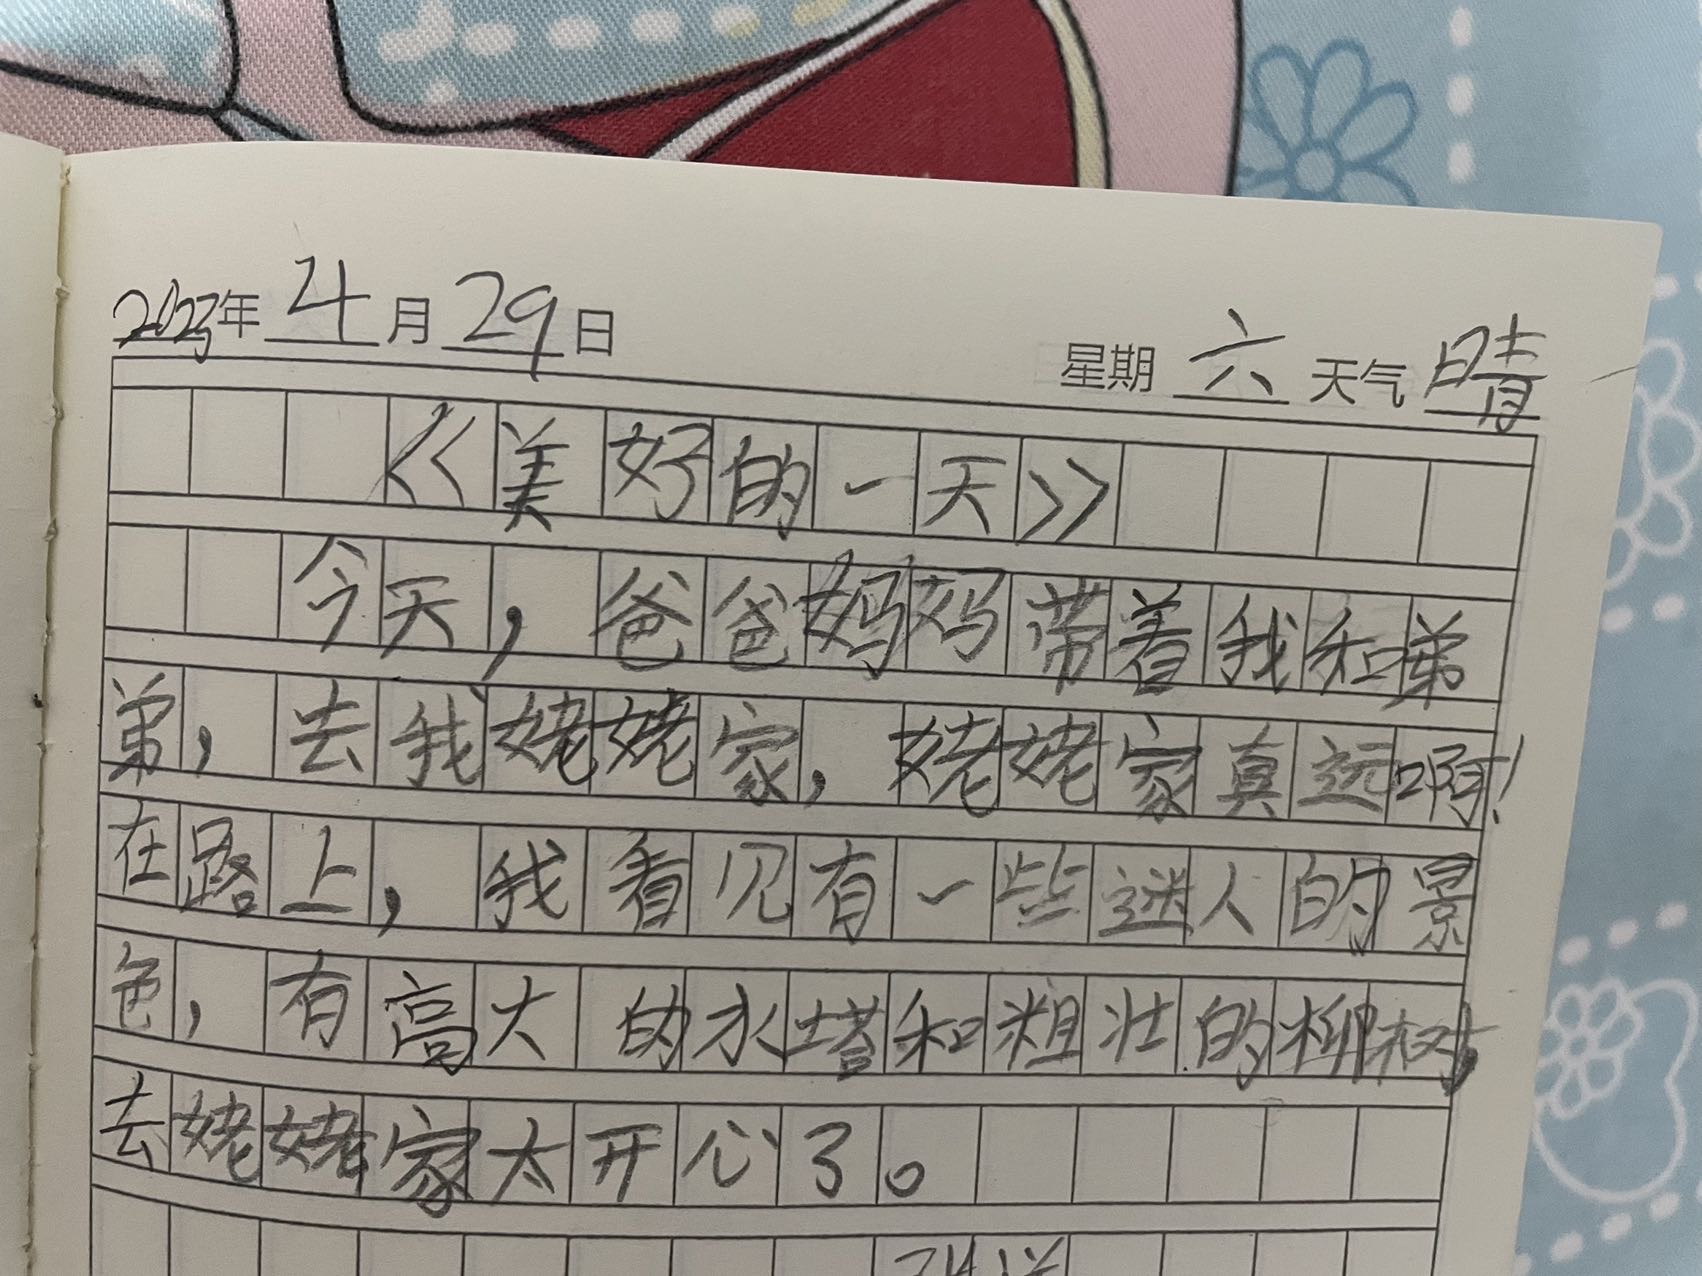 2023年 4月 29日 星期 六 天气 晴
《美好的一天》
今天，爸爸妈妈带着我和弟
弟，去我姥姥家，姥姥家真远啊！
在路上，我看见有一些迷人的景
色，有高大的水塔和粗壮的柳树，
去姥姥家太开心了。